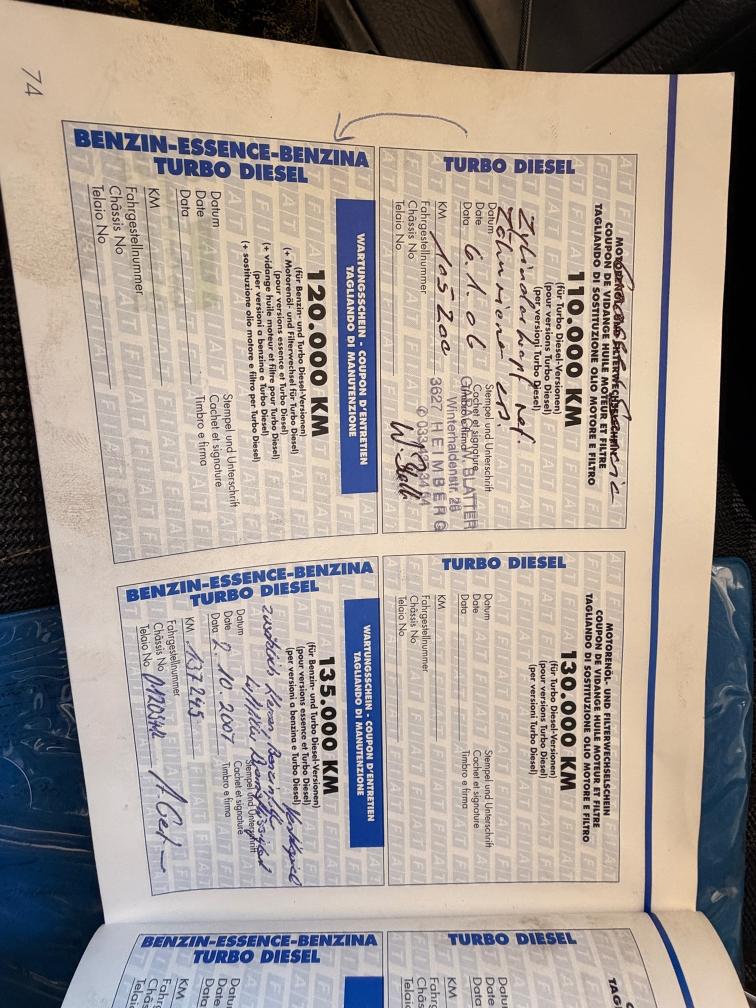 74
TURBO DIESEL
MOTORENÖL- UND FILTERWECHSELSCHEIN
COUPON DE VIDANGE HUILE MOTEUR ET FILTRE
TAGLIANDO DI SOSTITUZIONE OLIO MOTORE E FILTRO
110.000 KM
(für Turbo Diesel-Versionen)
(pour versions Turbo Diesel)
(per versioni Turbo Diesel)
Zylinderkopf
Zahnriemen
Datum
Date
Data 6.1.06
KM 105200
Fahrgestellnummer
Châssis No
Telaio No
Stempel und Unterschrift
Cachet et signature
Timbro e firma
W. BLATTER
Winterhaldenstr. 28
3627 HEIMBERG
BENZIN-ESSENCE-BENZINA
TURBO DIESEL
WARTUNGSSCHEIN - COUPON D'ENTRETIEN
TAGLIANDO DI MANUTENZIONE
120.000 KM
(für Benzin- und Turbo Diesel-Versionen)
(+ Motorenöl- und Filterwechsel für Turbo Diesel)
(pour versions essence et Turbo Diesel)
(+ vidange huile moteur et filtre pour Turbo Diesel)
(per versioni a benzina e Turbo Diesel)
(+ sostituzione olio motore e filtro per Turbo Diesel)
Datum
Date
Data
KM
Fahrgestellnummer
Châssis No
Telaio No
Stempel und Unterschrift
Cachet et signature
Timbro e firma
TURBO DIESEL
MOTORENÖL- UND FILTERWECHSELSCHEIN
COUPON DE VIDANGE HUILE MOTEUR ET FILTRE
TAGLIANDO DI SOSTITUZIONE OLIO MOTORE E FILTRO
130.000 KM
(für Turbo Diesel-Versionen)
(pour versions Turbo Diesel)
(per versioni Turbo Diesel)
Datum
Date
Data
KM
Fahrgestellnummer
Châssis No
Telaio No
Stempel und Unterschrift
Cachet et signature
Timbro e firma
BENZIN-ESSENCE-BENZINA
TURBO DIESEL
WARTUNGSSCHEIN - COUPON D'ENTRETIEN
TAGLIANDO DI MANUTENZIONE
135.000 KM
(für Benzin- und Turbo Diesel-Versionen)
(pour versions essence et Turbo Diesel)
(per versioni a benzina e Turbo Diesel)
Datum
Date
Data 2.10.2007
KM 137245
Fahrgestellnummer
Châssis No
Telaio No
Stempel und Unterschrift
Cachet et signature
Timbro e firma
TURBO DIESEL
BENZIN-ESSENCE-BENZINA
TURBO DIESEL